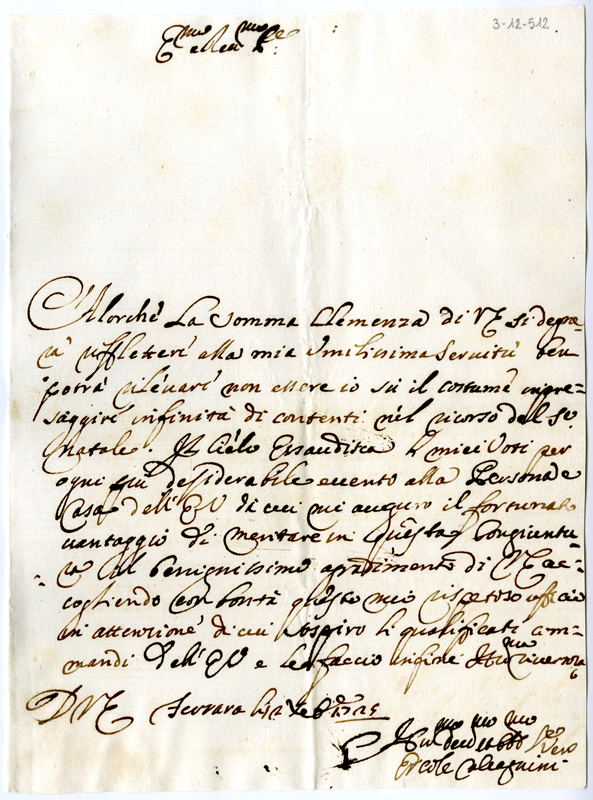 3-12-512
Allorché La Somma Clemenza di V E si degne-
rà riflettere alla mia Umilissima Servitù ben
potrà rilevare non essere io sù il costume in pre-
saggire infinità di contenti nel ricorso del S.
Natale. Il Cielo Essaudisca i miei Voti per
ogni più dessiderabile evento alla Persona e
Casa dell' E V di cui mi auguro il fortunato
vantaggio di meritare in questa Congiuntu-
ra il benignissimo agradimento di V E ac-
cogliendo con bontà questo mio rispettoso ufficio
in attenzione di cui sospiro li qualificati com-
mandi dell' E V e le faccio infine
D V E Ferrara li 1725
Ercole Calcagnini